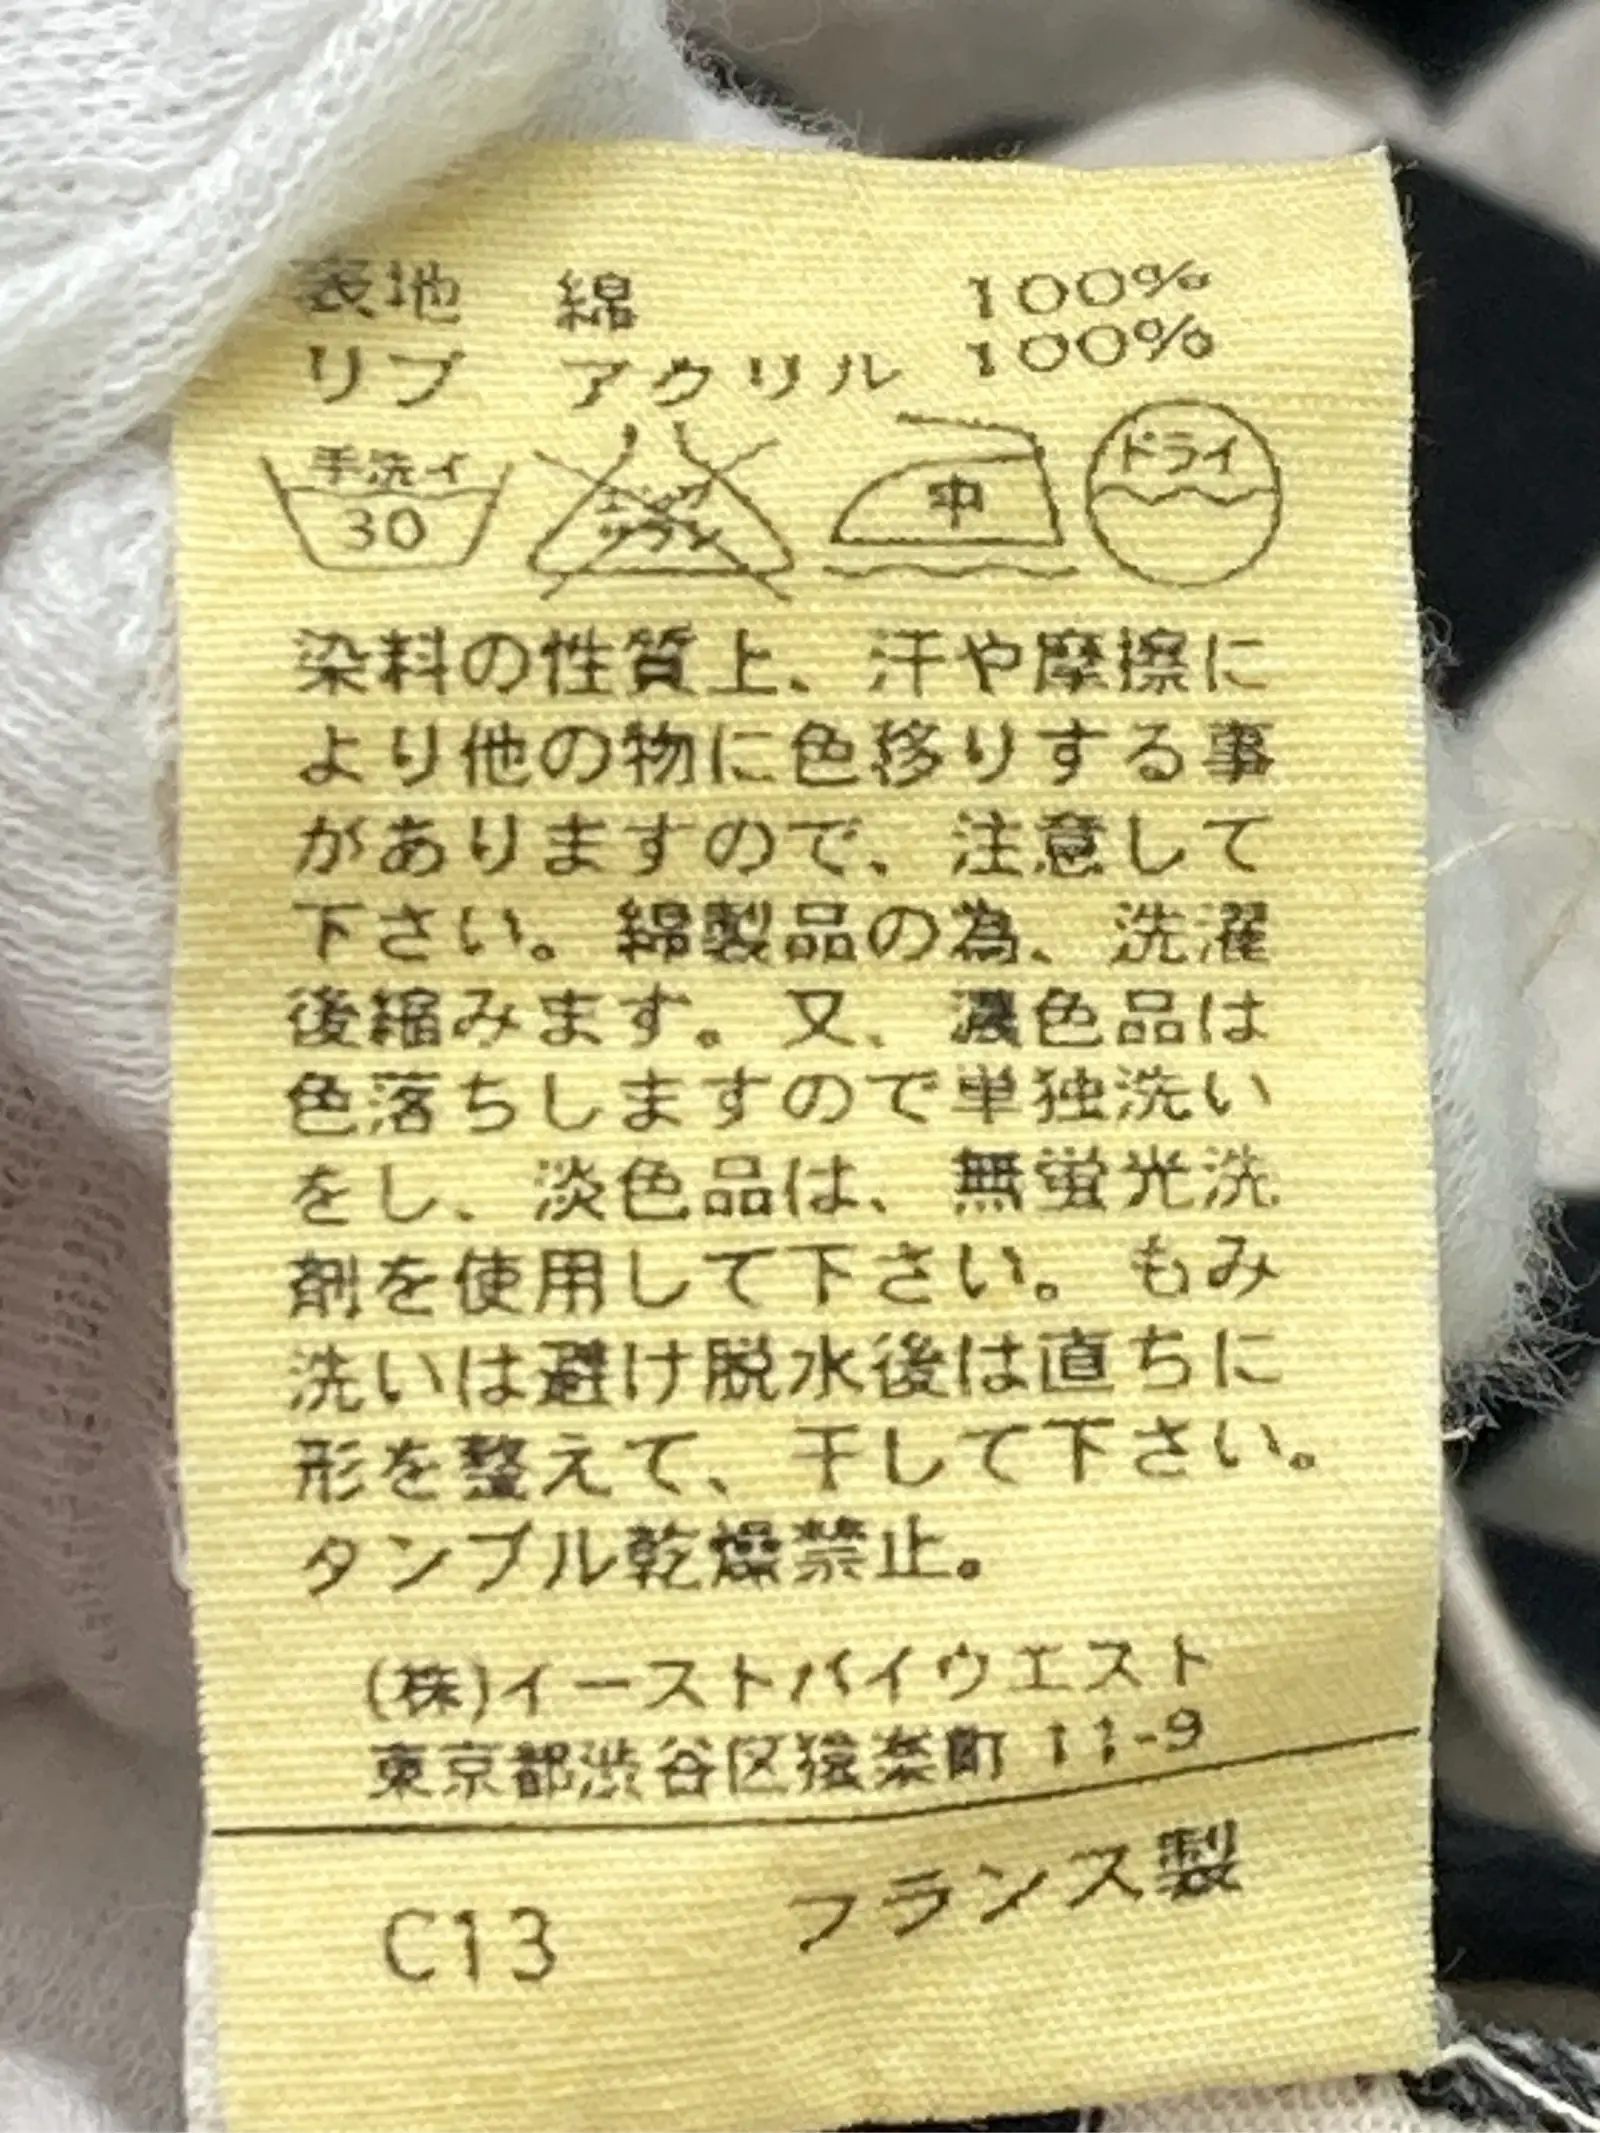 表地 綿 100%
リブ アクリル 100%
手洗イ 30 エンソサラシ 中 ドライ
染料の性質上、汗や摩擦に
より他の物に色移りする事
がありますので、注意して
下さい。綿製品の為、洗濯
後縮みます。又、濃色品は
色落ちしますので単独洗い
をし、淡色品は、無蛍光洗
剤を使用して下さい。もみ
洗いは避け脱水後は直ちに
形を整えて、干して下さい。
タンブル乾燥禁止。
(株)イーストバイウエスト
東京都渋谷区猿楽町 11-9
C13 フランス製